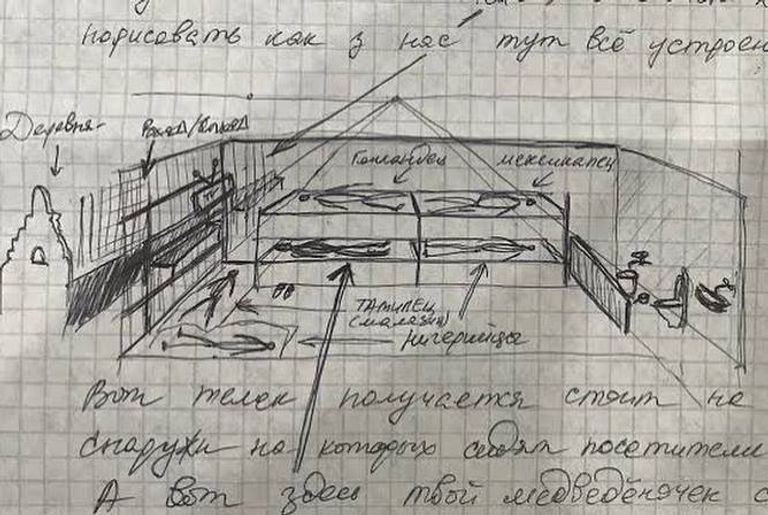 нарисовать как у нас тут всё устроен
Деревня
Вход/Выход
Голландец
мексиканец
TV
ТАМИЛЕЦ
(малазия)
нигерийцы
Вот телек получается стоит на
снаружи на которых сидят посетители
А вот здесь твой медведёначек с